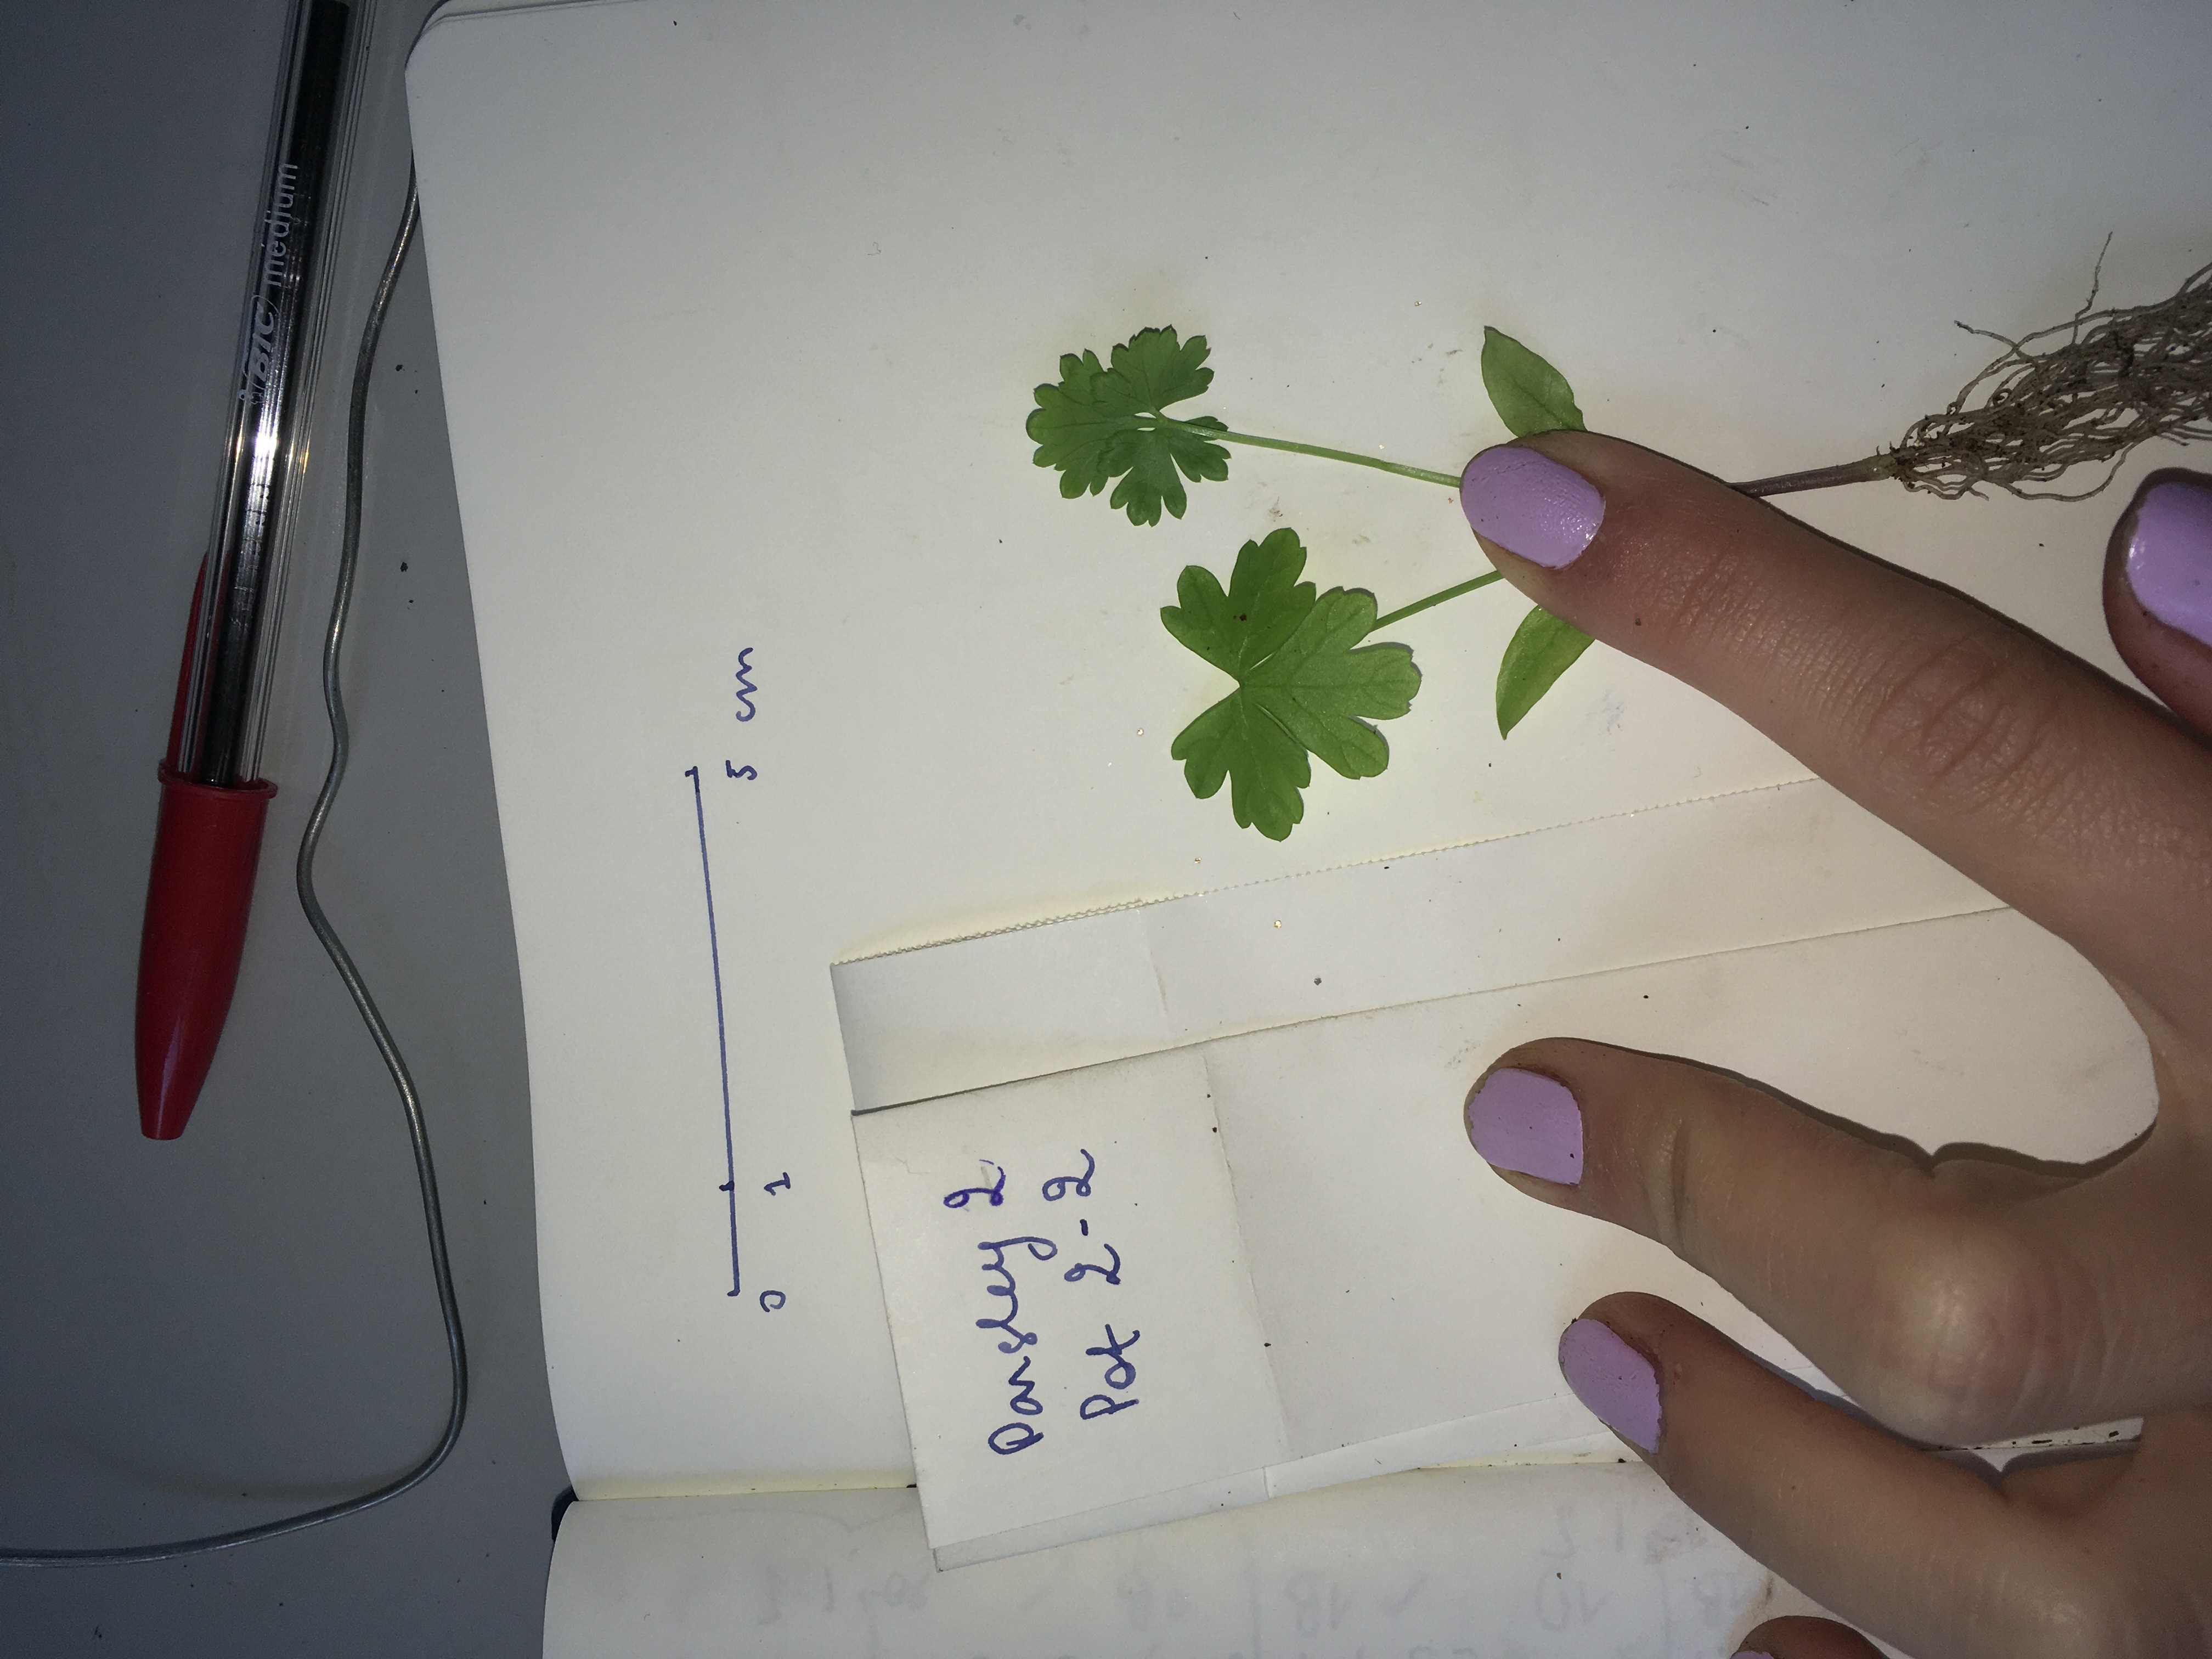 BIC medium
0 1 5 cm
Parsley 2
Pot 2-2